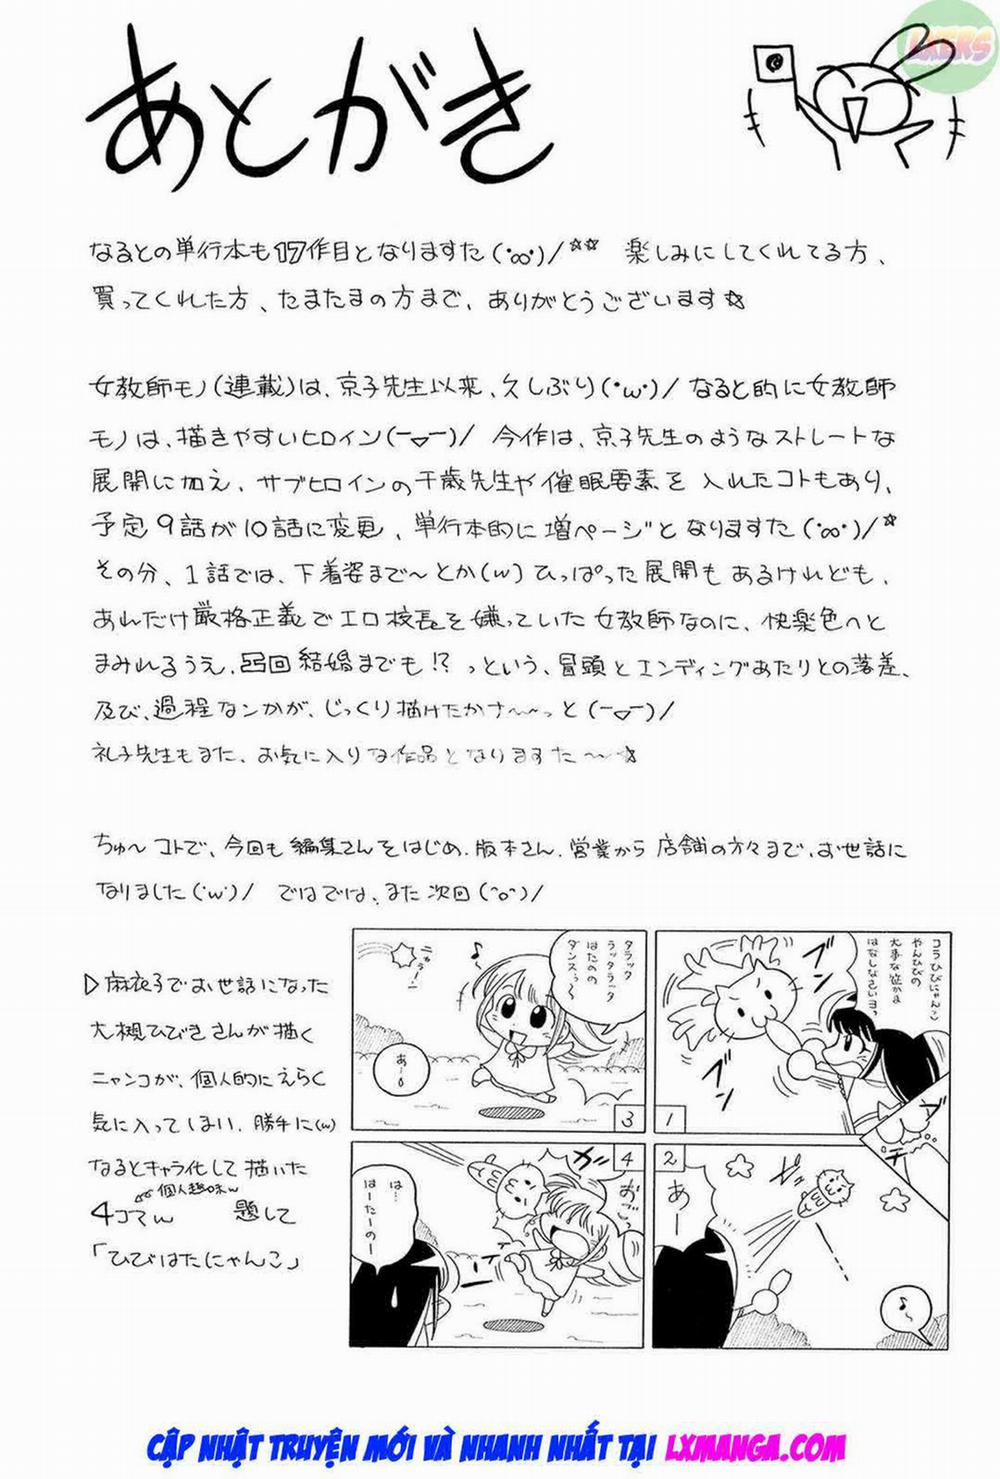 あとがき
なるとの単行本も17作目となりますた(・∞・)/☆☆ 楽しみにしてくれてる方、
買ってくれた方、たまたまの方まで、ありがとうございます☆
女教師モノ(連載)は、京子先生以来、久しぶり(・w・)/ なると的に女教師
モノは、描きやすいヒロイン(ー▽ー)/ 今作は、京子先生のようなストレートな
展開に加え、サブヒロインの千歳先生や催眠要素を入れたコトもあり、
予定9話が10話に変更、単行本的に増ページとなりますた(・∞・)/☆
その分、1話では、下着姿まで〜とか(w)ひっぱった展開もあるけれども、
あれだけ厳格正義でエロ校長を嫌っていた女教師なのに、快楽色へと
まみれるうえ、凸凹結婚までも!? っという、冒頭とエンディングあたりとの落差、
及び、過程なンかが、じっくり描けたかナ〜〜っと(ー▽ー)/
礼子先生もまた、お気に入りな作品となりますた〜☆
ちゅ〜コトで、今回も編集さんをはじめ、版本さん、営業から店舗の方々まで、お世話に
なりました(・w・)/ ではでは、また次回(^o^)/
▷麻衣子でお世話になった
大槻ひびきさんが描く
ニャンコが、個人的にえらく
気に入ってしまい、勝手に(w)
なるとキャラ化して描いた
個人趣味w
4コマw 題して
「ひびはたにゃんこ」
コラひびにゃんこ
やんひびの
大事な
はなしなさいヨっ
ブン
ブン
1
2
あー
♪
タラック
ラッタラータ
はたのの
ダンスっ〜
♪
ニャラーン
あー。
3
4
ガッ
おごっ
は…
はーたーのー
CẬP NHẬT TRUYỆN MỚI VÀ NHANH NHẤT TẠI LXMANGA.COM